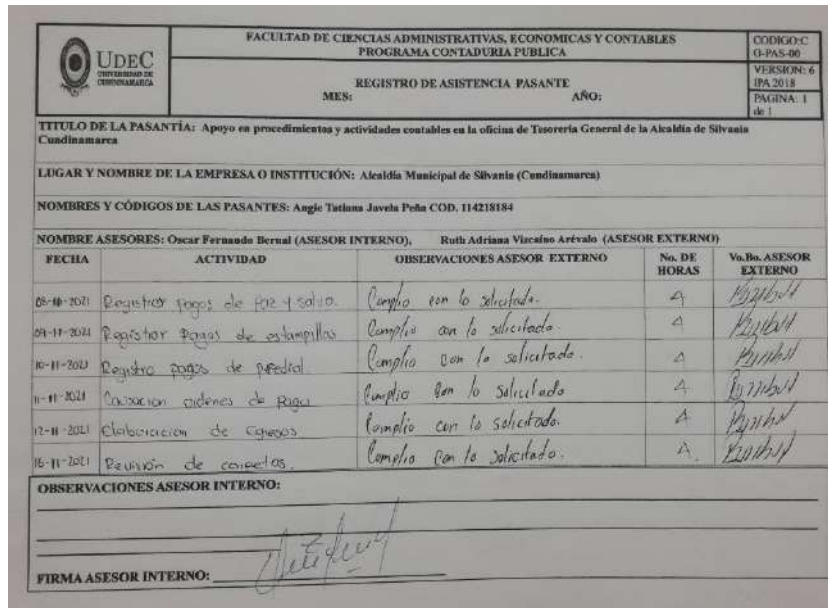 UDEC
UNIVERSIDAD DE
CUNDINAMARCA
FACULTAD DE CIENCIAS ADMINISTRATIVAS, ECONOMICAS Y CONTABLES
PROGRAMA CONTADURIA PUBLICA
CODIGO:C
O-PAS-00
VERSION: 6
IPA 2018
REGISTRO DE ASISTENCIA PASANTE
MES: AÑO:
PAGINA: 1
de 1
TITULO DE LA PASANTÍA: Apoyo en procedimientos y actividades contables en la oficina de Tesorería General de la Alcaldía de Silvania
Cundinamarca
LUGAR Y NOMBRE DE LA EMPRESA O INSTITUCIÓN: Alcaldía Municipal de Silvania (Cundinamarca)
NOMBRES Y CÓDIGOS DE LAS PASANTES: Angie Tatiana Javela Peña COD. 114218184
NOMBRE ASESORES: Oscar Fernando Bernal (ASESOR INTERNO), Ruth Adriana Vizcaíno Arévalo (ASESOR EXTERNO)
FECHA ACTIVIDAD OBSERVACIONES ASESOR EXTERNO No. DE HORAS Vo.Bo. ASESOR EXTERNO
Registrar pagos de Paz y salvo. Cumplio con lo solicitado. 4
09-11-2021 Registrar Pagos de estampillas Cumplio con lo solicitado. 4
10-11-2021 Registro pagos de predial Cumplio con lo solicitado. 4
11-11-2021 Causacion ordenes de Pago Cumplio con lo solicitado 4
12-11-2021 Elaboracion de Egresos Cumplio con lo solicitado. 4
16-11-2021 Revisión de carpetas. Cumplio con lo solicitado. 4.
OBSERVACIONES ASESOR INTERNO:
FIRMA ASESOR INTERNO: